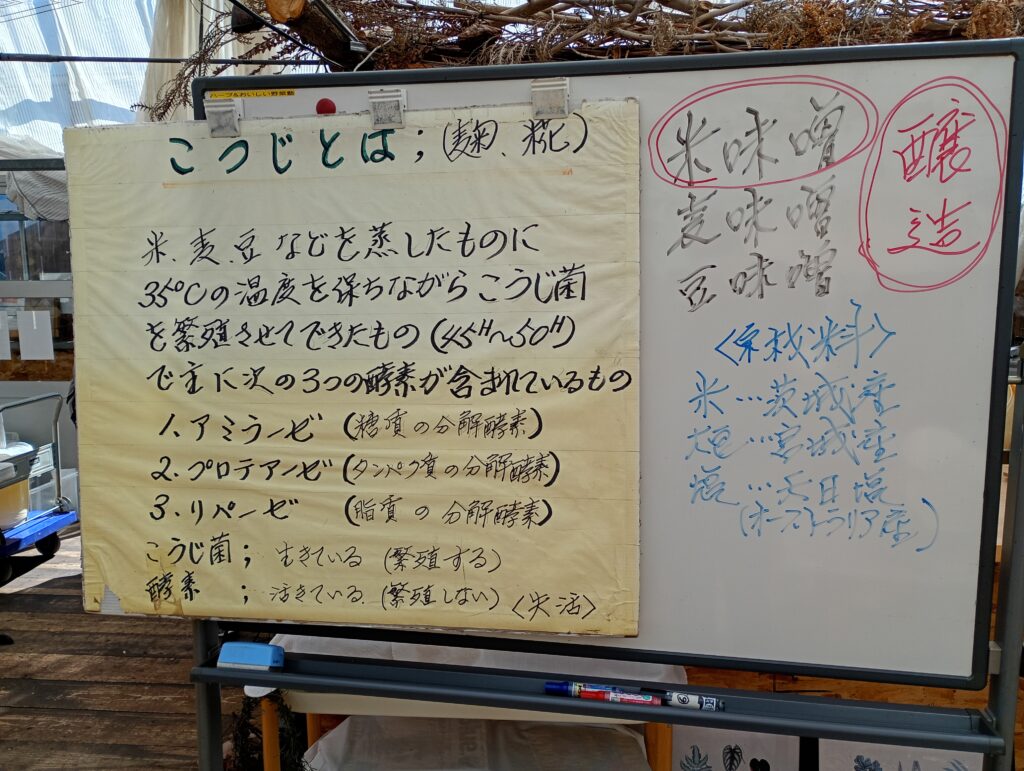 ハーブ&おいしい野菜塾
こうじとは；(麹、糀)
米、麦、豆などを蒸したものに
35℃の温度を保ちながらこうじ菌
を繁殖させてできたもの(45H〜50H)
で主に次の3つの酵素が含まれているもの
1. アミラーゼ (糖質の分解酵素)
2. プロテアーゼ (タンパク質の分解酵素)
3. リパーゼ (脂質の分解酵素)
こうじ菌； 生きている (繁殖する)
酵素； 活きている (繁殖しない) 〈失活〉
米味噌
麦味噌
豆味噌
醸造
〈原材料〉
米…茨城産
大豆…宮城産
塩…天日塩
(オーストラリア産)